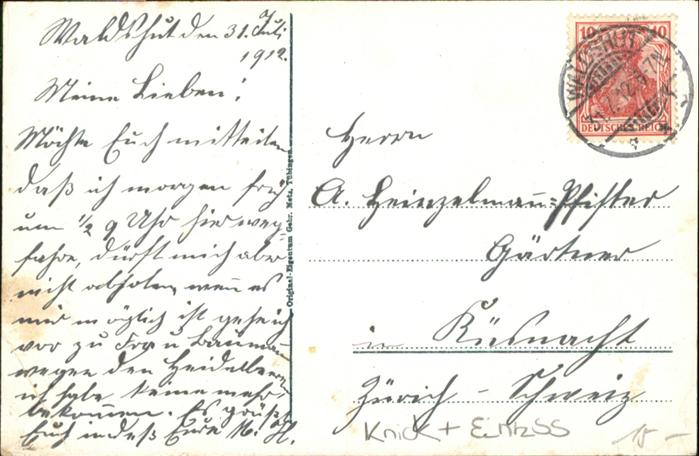 Waldshut den 31. Juli
1912.
Meine Lieben!
Möchte Euch mitteilen
daß ich morgen früh
um 1/2 9 Uhr hier weg
fahre, dürft mich aber
nicht abholen, wenn es
mir möglich ist gehe ich
vor zu Frau
wegen den Heidelbeeren
ich habe keine mehr
bekommen. Es grüßt
Euch indeß Eure M. H.
Original-Eigentum Gebr. Metz, Tübingen
10 10
DEUTSCHES REICH
WALDSHUT
Herrn
A. Heinzelmann-Pfister
Gärtner
in Küsnacht
Zürich – Schweiz
Knick + Einriss
15 –